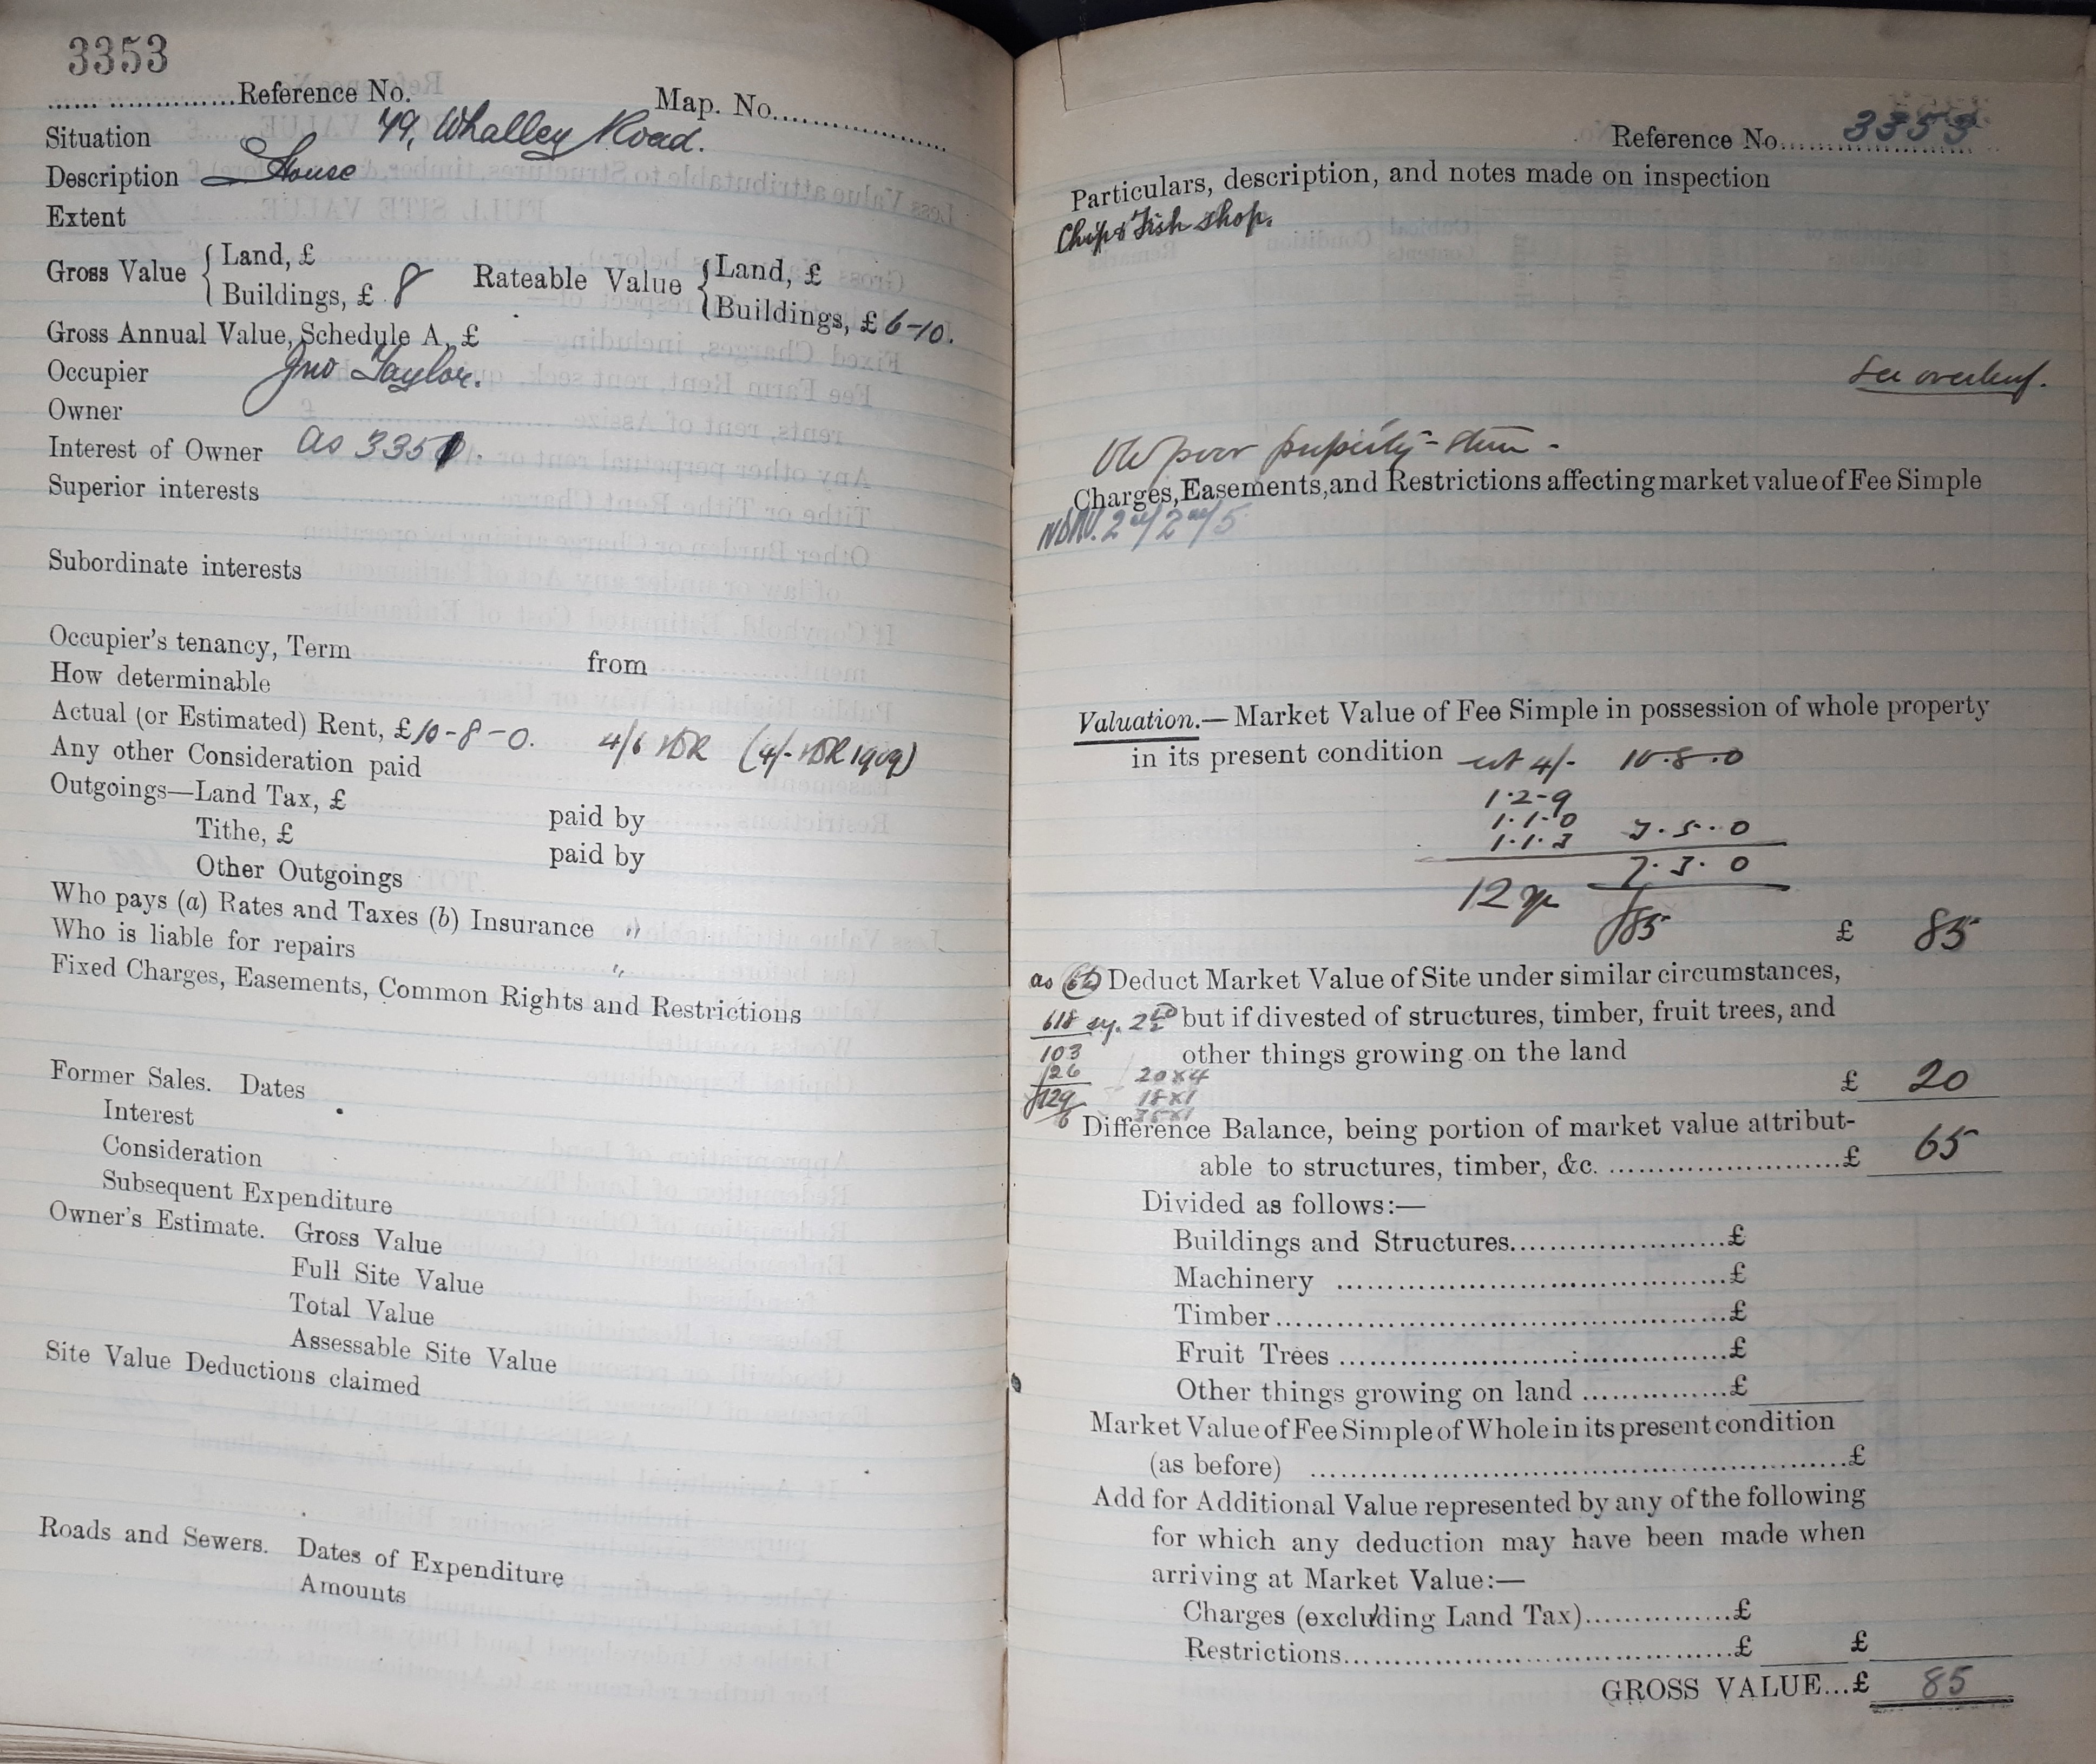 3353
Reference No. Map. No.
Situation 79, Whalley Road.
Description House
Extent
Gross Value { Land, £ Rateable Value { Land, £
Buildings, £ 8 Buildings, £ 6-10.
Gross Annual Value, Schedule A, £
Occupier Jno Taylor.
Owner
Interest of Owner as 3351.
Superior interests
Subordinate interests
Occupier's tenancy, Term from
How determinable
Actual (or Estimated) Rent, £10-8-0. 4/6 NDR (4/- NDR 1909)
Any other Consideration paid
Outgoings—Land Tax, £ paid by
Tithe, £ paid by
Other Outgoings
Who pays (a) Rates and Taxes (b) Insurance "
Who is liable for repairs "
Fixed Charges, Easements, Common Rights and Restrictions
Former Sales. Dates
Interest
Consideration
Subsequent Expenditure
Owner's Estimate. Gross Value
Full Site Value
Total Value
Assessable Site Value
Site Value Deductions claimed
Roads and Sewers. Dates of Expenditure
Amounts
Reference No. 3353
Particulars, description, and notes made on inspection
Chip & Fish shop.
See overleaf.
Old poor property -
Charges, Easements, and Restrictions affecting market value of Fee Simple
Valuation.—Market Value of Fee Simple in possession of whole property
in its present condition 4/- 10.8.0
1.2-9
1.1.0 3.5.0
1.1.3
7.3.0
12 yp £85
£ 85
as Deduct Market Value of Site under similar circumstances,
618 sy. but if divested of structures, timber, fruit trees, and
103 other things growing on the land
26 20x4
£129 18x1
£ 20
Difference Balance, being portion of market value attribut-
able to structures, timber, &c. £ 65
Divided as follows:—
Buildings and Structures £
Machinery £
Timber £
Fruit Trees £
Other things growing on land £
Market Value of Fee Simple of Whole in its present condition
(as before) £
Add for Additional Value represented by any of the following
for which any deduction may have been made when
arriving at Market Value:—
Charges (excluding Land Tax) £
Restrictions £ £
GROSS VALUE...£ 85